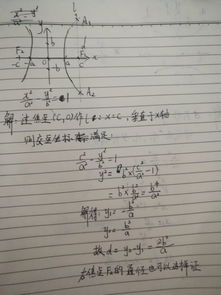 x²/a² - y²/b²
y
l
A₁
F₁
F₂
-c
-a
0
a
c
x
b
-b
A₂
x²/a² - y²/b² = 1
解: 过焦点(C,0)作l: x=c, 垂直于x轴
则交点坐标满足:
c²/a² - y²/b² = 1
y² = b²(c²/a² - 1)
= b² × b²/a² = b⁴/a²
解得: y₁ = - b²/a
y₂ = b²/a
故 d = y₂-y₁ = 2b²/a
左焦点F₁的通径也可以这样证